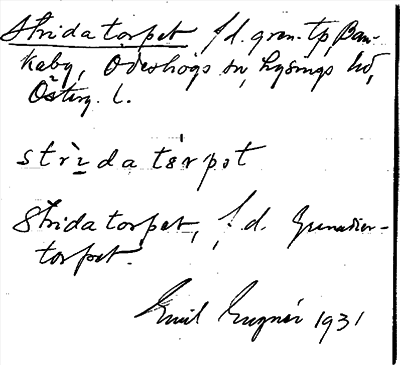 Stridatorpet f.d. gren.tp, Ban-
kaby, Ödeshögs sn, Lysings hd,
Österg. l.
strìdatɛrpət
Stridatorpet, f.d. Grenadier-
torpet.
Emil 1931